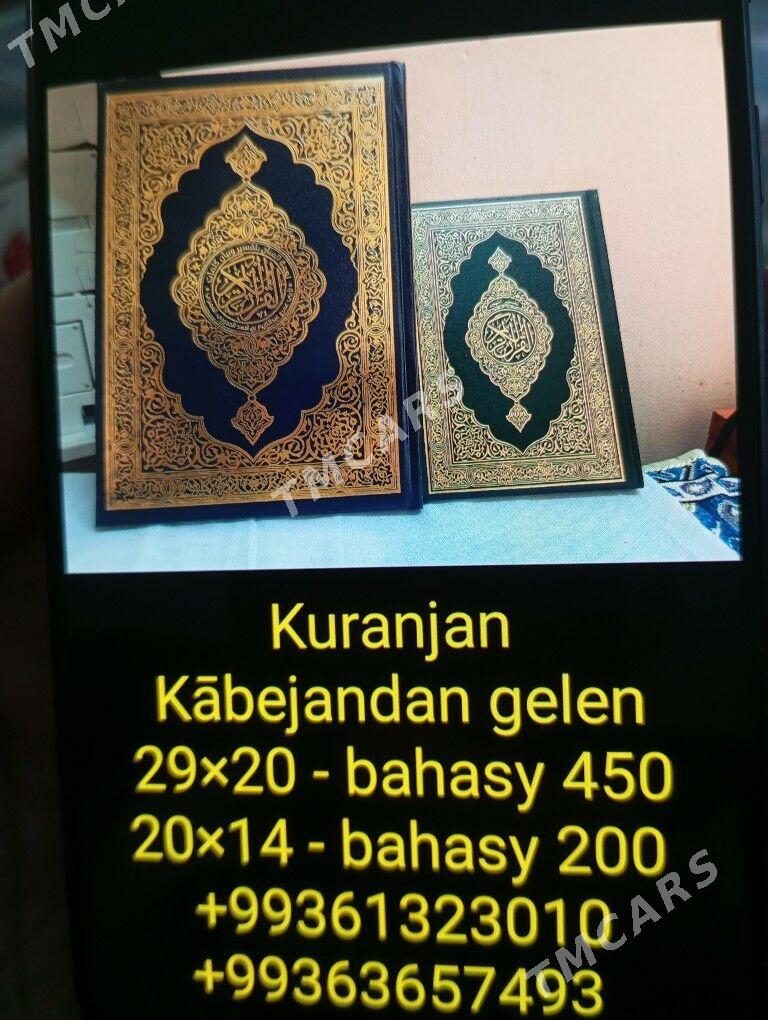 TMCARS
القرآن الكريم
القرآن الكريم
TMCARS
Kuranjan
Kābejandan gelen
29×20 - bahasy 450
20×14 - bahasy 200
+99361323010
+99363657493
TMCARS